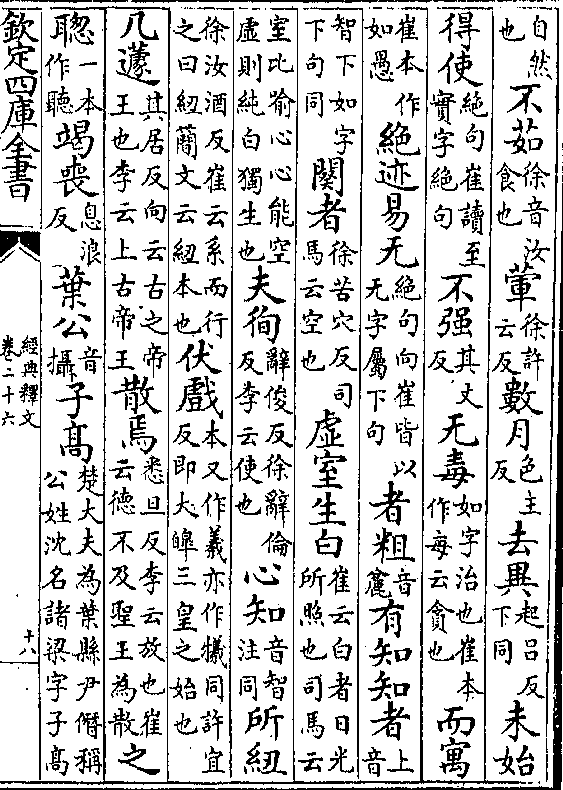 自然也不茹徐音汝食也葷徐許云反數月色主反去異起呂反下同未始
得使絶句崔讀至實字絶句不强其丈反无毒如字治也崔本作每云貪也而寓
崔本作如愚絶迹易无絶句向崔皆以无字屬下句者粗音麄有知知者上音
智下如字下句同闋者徐苦穴反司馬云空也虛室生白崔云白者日光所照也司馬云
室比喻心心能空虛則純白獨生也夫徇辭俊反徐辭倫反李云使也心知音智注同所紐
徐汝酒反崔云系而行之曰紐簡文云紐本也伏戲本又作羲亦作犧同許宜反即大皥三皇之始也
几蘧其居反向云古之帝王也李云上古帝王散焉悉旦反李云放也崔云德不及聖王為散之
聦一本作聽竭喪息浪反葉公音攝子髙楚大夫為葉縣尹僭稱公姓沈名諸梁字子髙
欽定四庫全書
經典釋文
卷二十六
十八